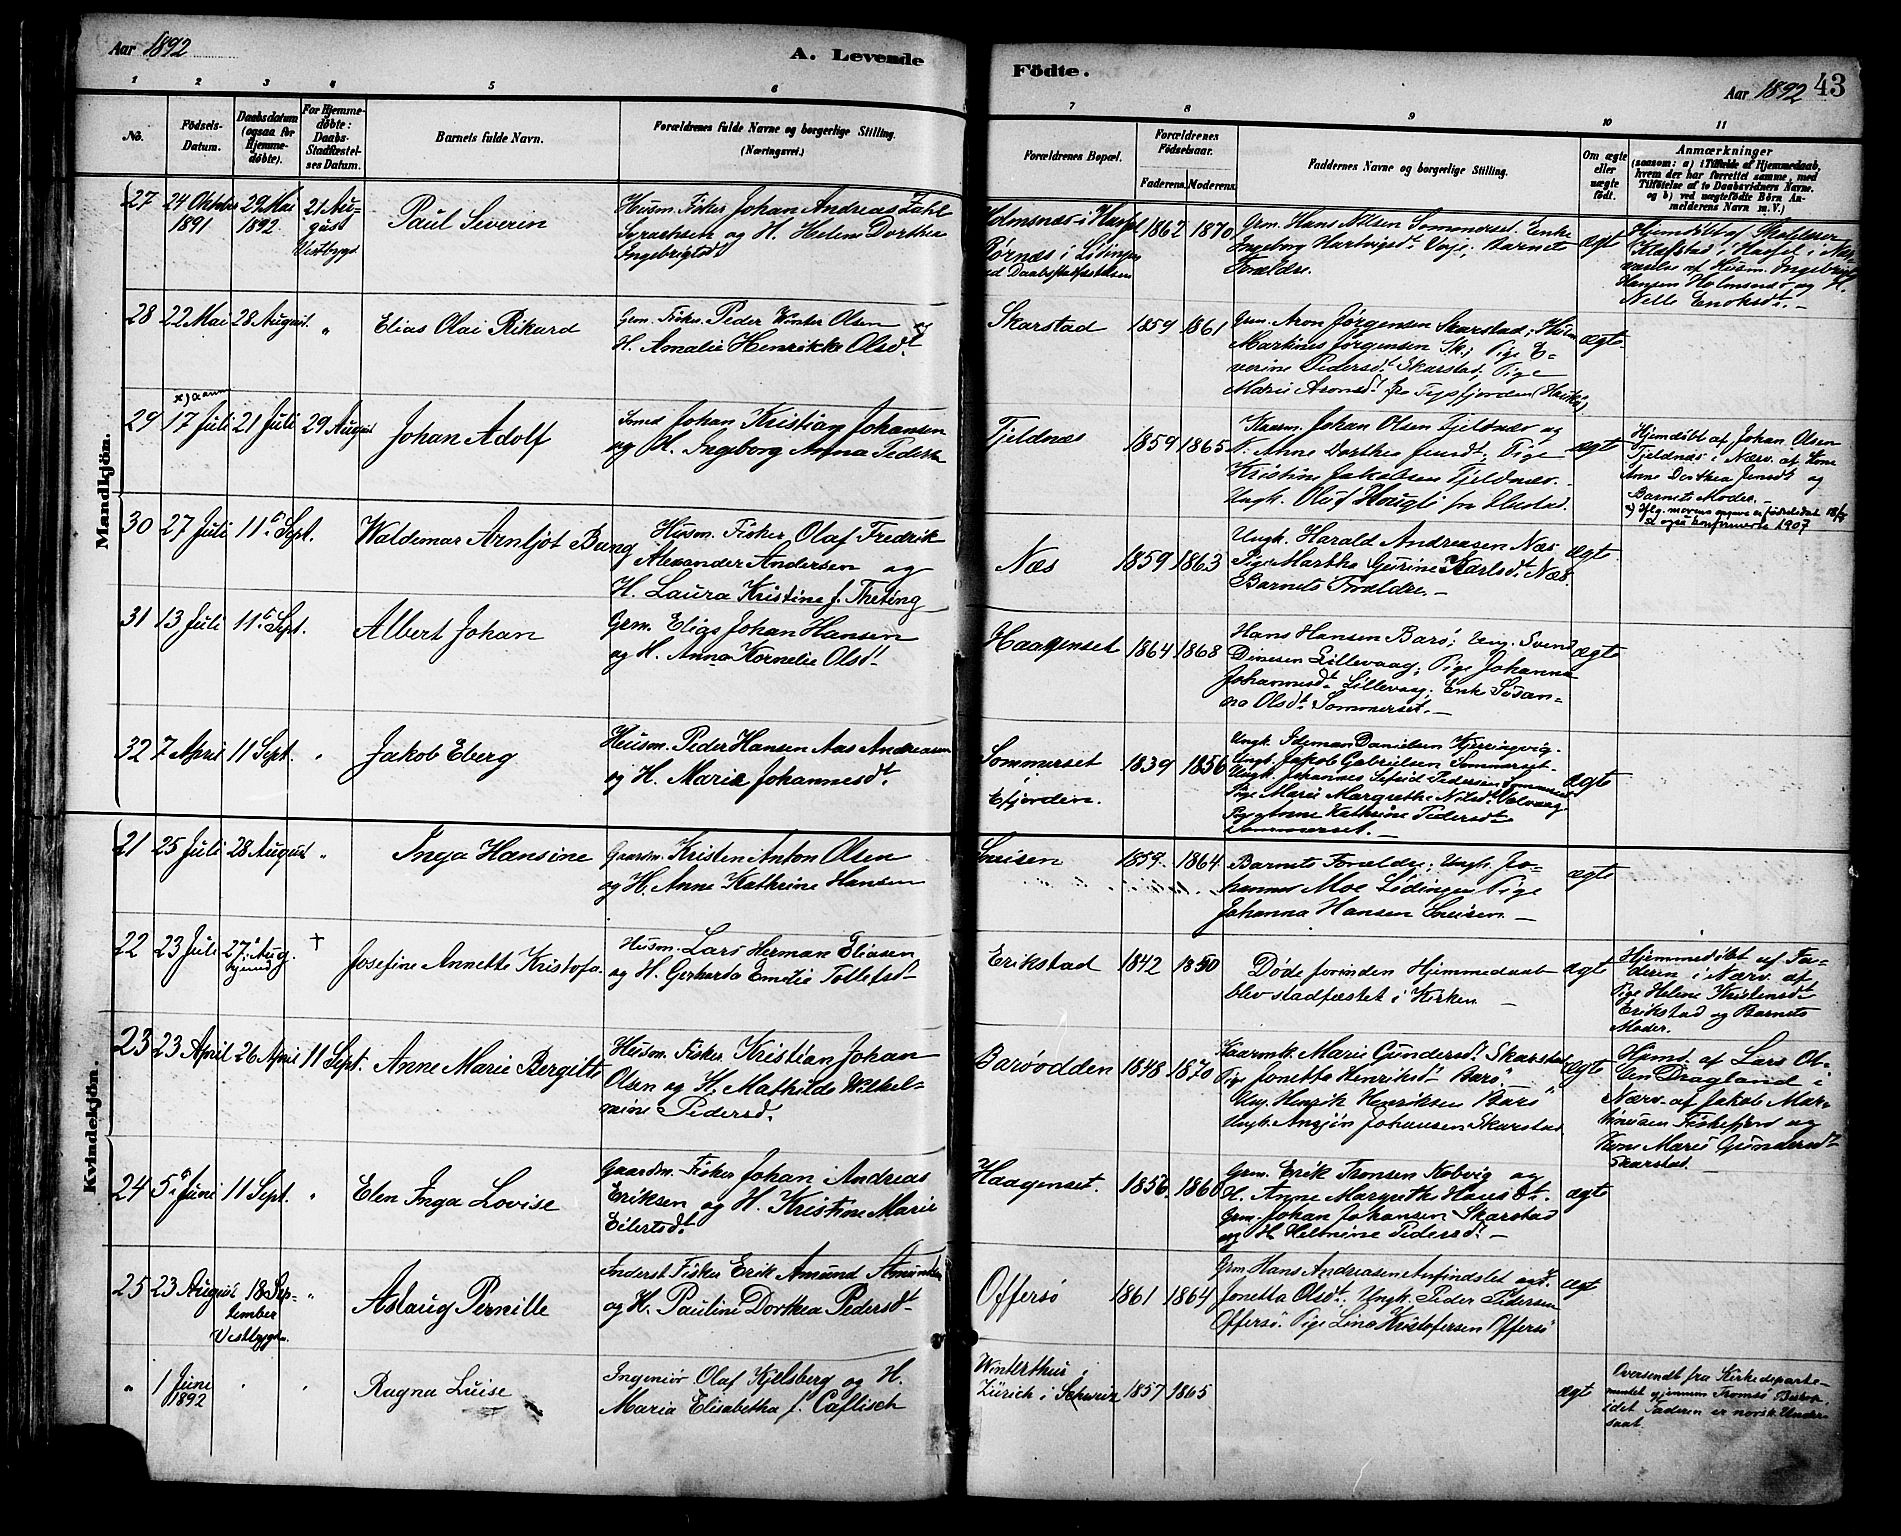 Aar 1892
A. Levende
Födte.
Aar 1892
43
1 2 3 4 5 6
7 8 9 10 11
No.
Födsels-
Datum.
Daabsdatum
(ogsaa for
Hjemme-
döbte).
For Hjemme-
döbte:
Daabs-
Stadfæstel-
ses Datum.
Barnets fulde Navn.
Forældrenes fulde Navne og borgerlige Stilling.
(Næringsvei.)
Forældrenes Bopæl.
Forældrenes
Födselsaar.
Faderens. Moderens.
Faddernes Navne og borgerlige Stilling.
Om ægte
eller
uægte
født.
Anmærkninger
(saasom: a) i Tilfælde af Hjemmedaab,
hvem der har forrettet samme, med
Tilföielse af to Daabsvidners Navne.
og b) ved uægtefödte Börn An-
melderens Navn m.V.)
Mandkjön.
27 24 Oktober 1891
29 Mai 1892
21 August
Vestbygd
Paul Severin
Husm. Fisker Johan Andreas Zahl
Syrachsen og H. Helene Dorthea
Ingebrigtsdt
1862 1870
Grm. Hans Nilsen Sommerset. Enke
Ingeborg Hartvigsdt Voje; Barnets
Forældre.
ægte
Hansen Holmsnes og H.
Nelle Enoksdt. —
28 22 Mai 28 August "
Elias Olai Rikard
Gm. Fisker Peder Winter Olsen og
H. Amalie Henrikke Olsdt
Skarstad 1859 1861
Grm. Aron Jørgensen Skarstad; Husm
Martines Jørgensen Sk.; Pige E-
verine Pedersdt Skarstad; Pige
Marie Aronsdt fra Tysfjorden
ægte
29 17 Juli 21 Juli 29 August
Johan Adolf
Smed Johan Kristian Johansen
og H. Ingeborg Anna Peders
Tjeldnæs 1859 1865
Husm. Johan Olsen Tjeldnæs og
H. Anne Dorthea Jensdt; Pige
Kristine Jakobsen Tjeldnæs.
Ungk. Oluf Hougli fra
ægte
Hjemdøbt af Johan Olsen
Tjeldnæs i Nærv. af Kone
Anne Dorthea Jensdt og
Barnets Moder. —
også konfirmerte 1907
30 27 Juli 11 Sept.
Waldemar Arntljot Bang
Husm. Fisker Olaf Fredrik
Alexander Andersen og
H. Laura Kristine f. Theting
Næs 1859 1863
Ungk. Harald Andreasen Næs
Pige Martha Gurine Karlsdt Næs.
Barnets Forældre. —
ægte
31 13 Juli 11 Sept.
Albert Johan
Grm. Elias Johan Hansen
og H. Anna Kornelie Olsdt
Haagenset 1864 1868
Hans Hansen Barø; Ung. Svend
Dinesen Lillevaag; Pige Johanna
Johannesdt Lillevaag; Enke Susan-
na Olsdt Sommerset. —
ægte
32 7 April 11 Sept. "
Jakob Eberg
Husm. Peder Hansen Aas Andreasen
og H. Maria Johannesdt
Sommerset
Efjorden. 1839 1856
Ungk. Danielsen Kjerringvig.
Ungk. Jakob Gabrielsen Sommerset
Ungk. Johannes Sefrid Pedersen Sommerset
Pige Marie Margrethe Nilsdt Valvaag
Pige Anne Kathrine Pedersdt
Sommerset. —
ægte
Kvindekjön.
21 25 Juli 28 August "
Inga Hansine
Gaardm. Kristen Anton Olsen
og H. Anne Kathrine Hansen
1859. 1864
Barnets Forældre; Ungk. Jo-
hannes Moe Lødingen Pige
Johanna Hansen —
ægte
22 23 Juli 27 Aug. †
Josefine Annette Kristofa.
Husm. Lars Herman Eliasen
og H. Gerharda Emilie Tollefsdt
Erikstad 1842 1850
Døde forinden Hjemmedaab
blev stadfæstet i Kirken. —
ægte
Hjemmedøbt af Fa-
deren i Nærv. af
Pige Helene Kristensdt
Erikstad og Barnets
Moder.
23 23 April 26 April 11 Sept.
Anne Marie Bergitte
Husm. Fisker Kristian Johan
Olsen og H. Mathilde Wilhel-
mine Pedersdt
Barøodden 1848 1870
Marie Gundersdt Skarstad
Pige Jonetta Henriksdt Barø
Ung. Henrik Henriksen Barø
Ungk. Ansjön Johansen Skarstad
ægte
Hjmd. af Lars Ol-
sen Dragland i
Nærv. af Jakob Mar-
tinusen Fiskefjord og
Kone Marie Gundersdt
Skarstad. —
24 5 Juni 11 Sept. "
Elen Inga Lovise
Gaardm. Fisker Johan Andreas
Eriksen og H. Kristine Marie
Eilertsdt
Haagenset. 1856. 1860
Grm. Erik Tronsen Kobvig og
H. Anne Margrethe Hansdt.
Grm. Johan Johansen Skarstad
og H. Helmine Pedersdt —
ægte
25 23 August 18 Sep-
tember
Vestbygden. "
Aslaug Pernille
Inderst Fisker Erik Amund Amundsen
og H. Pauline Dorthea Pedersdt
Offersø 1861 1864
Grm Hans Andreasen Anfindslet og H.
Jonetta Olsdt; Ungk. Peder Pedersen
Offersø. Pige Lina Kristofersen Offersø
ægt
" 1 Juni 1892
Ragna Luise
Ingeniør Olaf Kjelsberg og H.
Maria Elisabetha f. Caflisch
Winterthur,
Zürich i Schweiz 1857 1865
ægt
Oversendt fra Kirkedeparte-
mentet gjennem Tromsø Bispe-
Faderen er norsk Under-
saat.